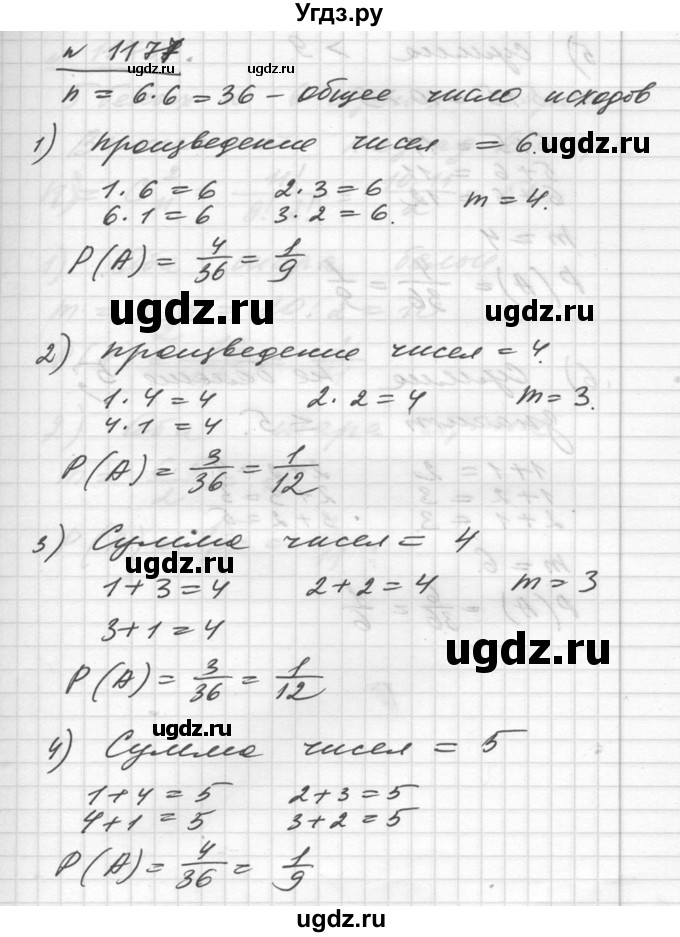 Угдз.ру
n 1177.
ugdz.ru ugdz.ru
n = 6·6 = 36 – общее число исходов
1) произведение чисел = 6. ugdz.ru
1·6=6 2·3=6 m=4.
ugdz.ru
6·1=6 3·2=6.
P(A) = 4/36 = 1/9
ugdz.ru ugdz.ru
2) произведение чисел = 4.
1·4=4 2·2=4 m=3.
ugdz.ru
4·1=4
P(A) = 3/36 = 1/12
ugdz.ru
3) Сумма чисел = 4
ugdz.ru
1+3=4 2+2=4 m=3
3+1=4
ugdz.ru
P(A) = 3/36 = 1/12
ugdz.ru
4) Сумма чисел = 5
1+4=5 2+3=5
4+1=5 3+2=5
P(A) = 4/36 = 1/9
ugdz.ru ugdz.ru
ugdz.ru